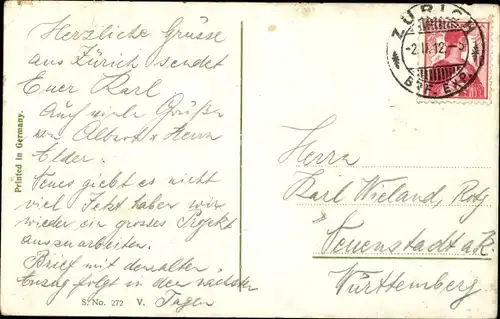 Herzliche Grüsse
aus Zürich sendet
Euer Karl
Auch viele Grüße
von Albert & Herrn
Elder.
Neues giebt es nicht
viel Jetzt haben wir
wieder ein grosses Projekt
auszuarbeiten.
Brief mit dem alten
Anzug folgt in den nächsten
Tagen
Printed in Germany.
S. No. 272 V.
ZÜRICH
-2.II.12.-5
BRF. EXP.
Herrn
Karl Wieland,
Neuenstadt a.K.
Württemberg.